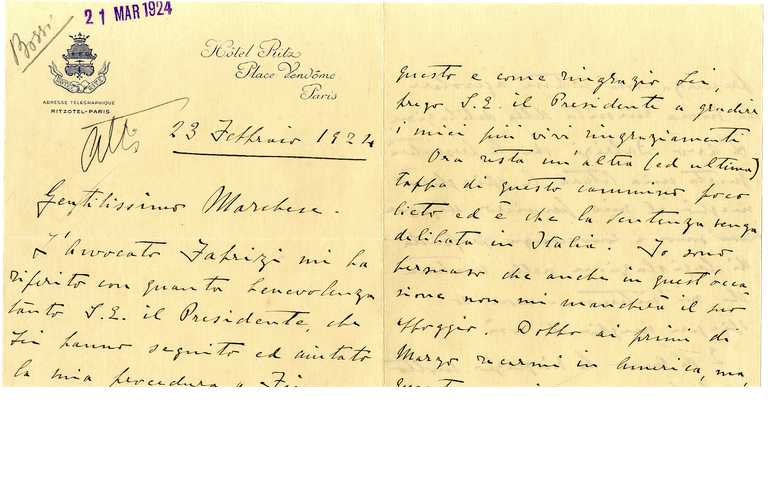 Bossi
21 MAR 1924
Hôtel Ritz
Place Vendôme
Paris
ADRESSE TÉLÉGRAPHIQUE
RITZOTEL-PARIS
Atti
23 Febbraio 1924
Gentilissimo Marchese.
L'Avvocato Fabrizi mi ha
riferito con quanta benevolenza
tanto S.E. il Presidente, che
Lei hanno seguito ed aiutato
la mia procedura a
questo e come ringrazio Lei,
prego S.E. il Presidente a gradire
i miei più vivi ringraziamenti
Ora resta un'altra (ed ultima)
tappa di questo cammino poco
lieto ed è che la sentenza venga
delibata in Italia. Io sono
persuaso che anche in quest'occa
sione non mi mancherà il suo
appoggio. Debbo ai primi di
Marzo recarmi in America, ma,